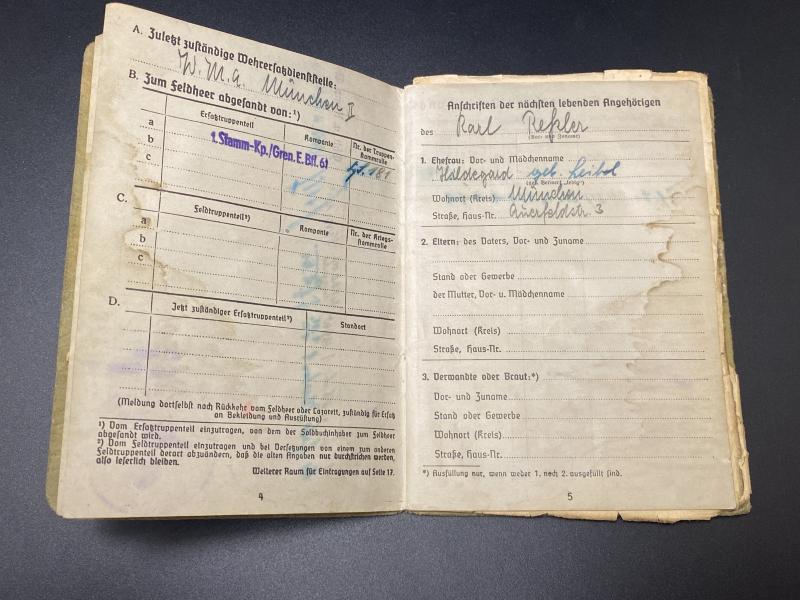 A. Zuletzt zuständige Wehrersatzdienststelle:
W. M. A. München II
B. Zum Feldheer abgesandt von:¹)
Ersatztruppenteil Kompanie Nr. der Truppenstammrolle
a
b 1. Stamm-Kp./Gren. E. Btl. 61 181
c
C. Feldtruppenteil²) Kompanie Nr. der Kriegsstammrolle
a
b
c
D. Jetzt zuständiger Ersatztruppenteil²) Standort
(Meldung dortselbst nach Rückkehr vom Feldheer oder Lazarett, zuständig für Ersatz
an Bekleidung und Ausrüstung)
¹) Vom Ersatztruppenteil einzutragen, von dem der Soldbuchinhaber zum Feldheer
abgesandt wird.
²) Vom Feldtruppenteil einzutragen und bei Versetzungen von einem zum anderen
Feldtruppenteil derart abzuändern, daß die alten Angaben nur durchstrichen werden,
also leserlich bleiben.
Weiterer Raum für Eintragungen auf Seite 17.
4
Anschriften der nächsten lebenden Angehörigen
des Karl Reßler
(Vor- und Zuname)
1. Ehefrau: Vor- und Mädchenname
Hildegard geb. Leibel
Wohnort (Kreis) München
Straße, Haus-Nr. Auerfeldstr. 3
2. Eltern: des Vaters, Vor- und Zuname
Stand oder Gewerbe
der Mutter, Vor- u. Mädchenname
Wohnort (Kreis)
Straße, Haus-Nr.
3. Verwandte oder Braut:*)
Vor- und Zuname
Stand oder Gewerbe
Wohnort (Kreis)
Straße, Haus-Nr.
*) Ausfüllung nur, wenn weder 1. noch 2. ausgefüllt sind.
5